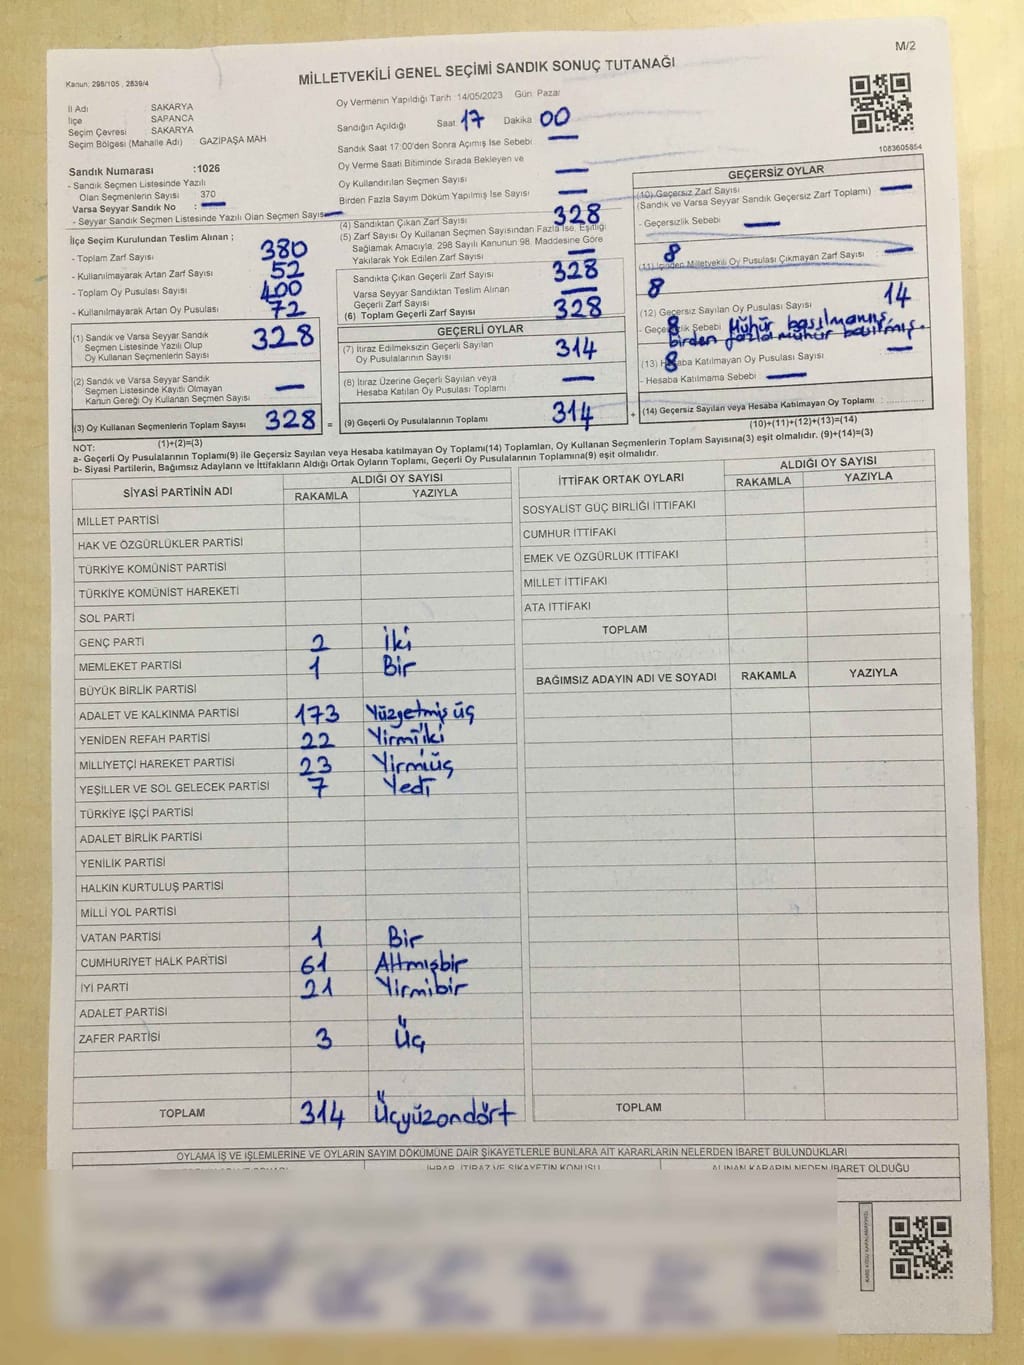 M/2
Kanun: 298/105 , 2839/4
MİLLETVEKİLİ GENEL SEÇİMİ SANDIK SONUÇ TUTANAĞI
İl Adı SAKARYA
İlçe SAPANCA
Seçim Çevresi SAKARYA
Seçim Bölgesi (Mahalle Adı) GAZİPAŞA MAH
Oy Vermenin Yapıldığı Tarih 14/05/2023 Gün Pazar
Sandığın Açıldığı Saat 17 Dakika 00
Sandık Saat 17:00'den Sonra Açımış İse Sebebi —
Oy Verme Saati Bitiminde Sırada Bekleyen ve
Oy Kullandırılan Seçmen Sayısı —
Birden Fazla Sayım Döküm Yapılmış İse Sayısı —
1083605854
Sandık Numarası :1026
- Sandık Seçmen Listesinde Yazılı
Olan Seçmenlerin Sayısı 370
Varsa Seyyar Sandık No : —
- Seyyar Sandık Seçmen Listesinde Yazılı Olan Seçmen Sayısı —
İlçe Seçim Kurulundan Teslim Alınan ;
- Toplam Zarf Sayısı 380
- Kullanılmayarak Artan Zarf Sayısı 52
- Toplam Oy Pusulası Sayısı 400
- Kullanılmayarak Artan Oy Pusulası 72
(1) Sandık ve Varsa Seyyar Sandık
Seçmen Listesinde Yazılı Olup
Oy Kullanan Seçmenlerin Sayısı 328
(2) Sandık ve Varsa Seyyar Sandık
Seçmen Listesinde Kayıtlı Olmayan
Kanun Gereği Oy Kullanan Seçmen Sayısı —
(3) Oy Kullanan Seçmenlerin Toplam Sayısı 328 =
(1)+(2)=(3)
(4) Sandıktan Çıkan Zarf Sayısı 328
(5) Zarf Sayısı Oy Kullanan Seçmen Sayısından Fazla İse, Eşitliği
Sağlamak Amacıyla, 298 Sayılı Kanunun 98. Maddesine Göre
Yakılarak Yok Edilen Zarf Sayısı —
Sandıkta Çıkan Geçerli Zarf Sayısı 328
Varsa Seyyar Sandıktan Teslim Alınan
Geçerli Zarf Sayısı —
(6) Toplam Geçerli Zarf Sayısı 328
GEÇERLİ OYLAR
(7) İtiraz Edilmeksizin Geçerli Sayılan
Oy Pusulalarının Sayısı 314
(8) İtiraz Üzerine Geçerli Sayılan veya
Hesaba Katılan Oy Pusulası Toplamı —
(9) Geçerli Oy Pusulalarının Toplamı 314 +
GEÇERSİZ OYLAR
(10) Geçersiz Zarf Sayısı
(Sandık ve Varsa Seyyar Sandık Geçersiz Zarf Toplamı) —
- Geçersizlik Sebebi —
8
(11) İçinden Milletvekili Oy Pusulası Çıkmayan Zarf Sayısı —
8
(12) Geçersiz Sayılan Oy Pusulası Sayısı 14
- Geçersizlik Sebebi 8 Mühür basılmamış,
birden fazla mühür basılmış.
(13) Hesaba Katılmayan Oy Pusulası Sayısı —
8
- Hesaba Katılmama Sebebi —
(14) Geçersiz Sayılan veya Hesaba Katılmayan Oy Toplamı :
(10)+(11)+(12)+(13)=(14)
NOT:
a- Geçerli Oy Pusulalarının Toplamı(9) ile Geçersiz Sayılan veya Hesaba katılmayan Oy Toplamı(14) Toplamları, Oy Kullanan Seçmenlerin Toplam Sayısına(3) eşit olmalıdır. (9)+(14)=(3)
b- Siyasi Partilerin, Bağımsız Adayların ve İttifakların Aldığı Ortak Oyların Toplamı, Geçerli Oy Pusulalarının Toplamına(9) eşit olmalıdır.
SİYASİ PARTİNİN ADI ALDIĞI OY SAYISI
RAKAMLA YAZIYLA
MİLLET PARTİSİ
HAK VE ÖZGÜRLÜKLER PARTİSİ
TÜRKİYE KOMÜNİST PARTİSİ
TÜRKİYE KOMÜNİST HAREKETİ
SOL PARTİ
GENÇ PARTİ 2 İki
MEMLEKET PARTİSİ 1 Bir
BÜYÜK BİRLİK PARTİSİ
ADALET VE KALKINMA PARTİSİ 173 Yüzyetmiş üç
YENİDEN REFAH PARTİSİ 22 Yirmiiki
MİLLİYETÇİ HAREKET PARTİSİ 23 Yirmiüç
YEŞİLLER VE SOL GELECEK PARTİSİ 7 Yedi
TÜRKİYE İŞÇİ PARTİSİ
ADALET BİRLİK PARTİSİ
YENİLİK PARTİSİ
HALKIN KURTULUŞ PARTİSİ
MİLLİ YOL PARTİSİ
VATAN PARTİSİ 1 Bir
CUMHURİYET HALK PARTİSİ 61 Altmışbir
İYİ PARTİ 21 Yirmibir
ADALET PARTİSİ
ZAFER PARTİSİ 3 Üç
TOPLAM 314 Üçyüzondört
İTTİFAK ORTAK OYLARI ALDIĞI OY SAYISI
RAKAMLA YAZIYLA
SOSYALİST GÜÇ BİRLİĞİ İTTİFAKI
CUMHUR İTTİFAKI
EMEK VE ÖZGÜRLÜK İTTİFAKI
MİLLET İTTİFAKI
ATA İTTİFAKI
TOPLAM
BAĞIMSIZ ADAYIN ADI VE SOYADI RAKAMLA YAZIYLA
TOPLAM
OYLAMA İŞ VE İŞLEMLERİNE VE OYLARIN SAYIM DÖKÜMÜNE DAİR ŞİKAYETLERLE BUNLARA AİT KARARLARIN NELERDEN İBARET BULUNDUKLARI
İHBAR, İTİRAZ VE ŞİKAYETİN KONUSU ALINAN KARARIN NEDEN İBARET OLDUĞU